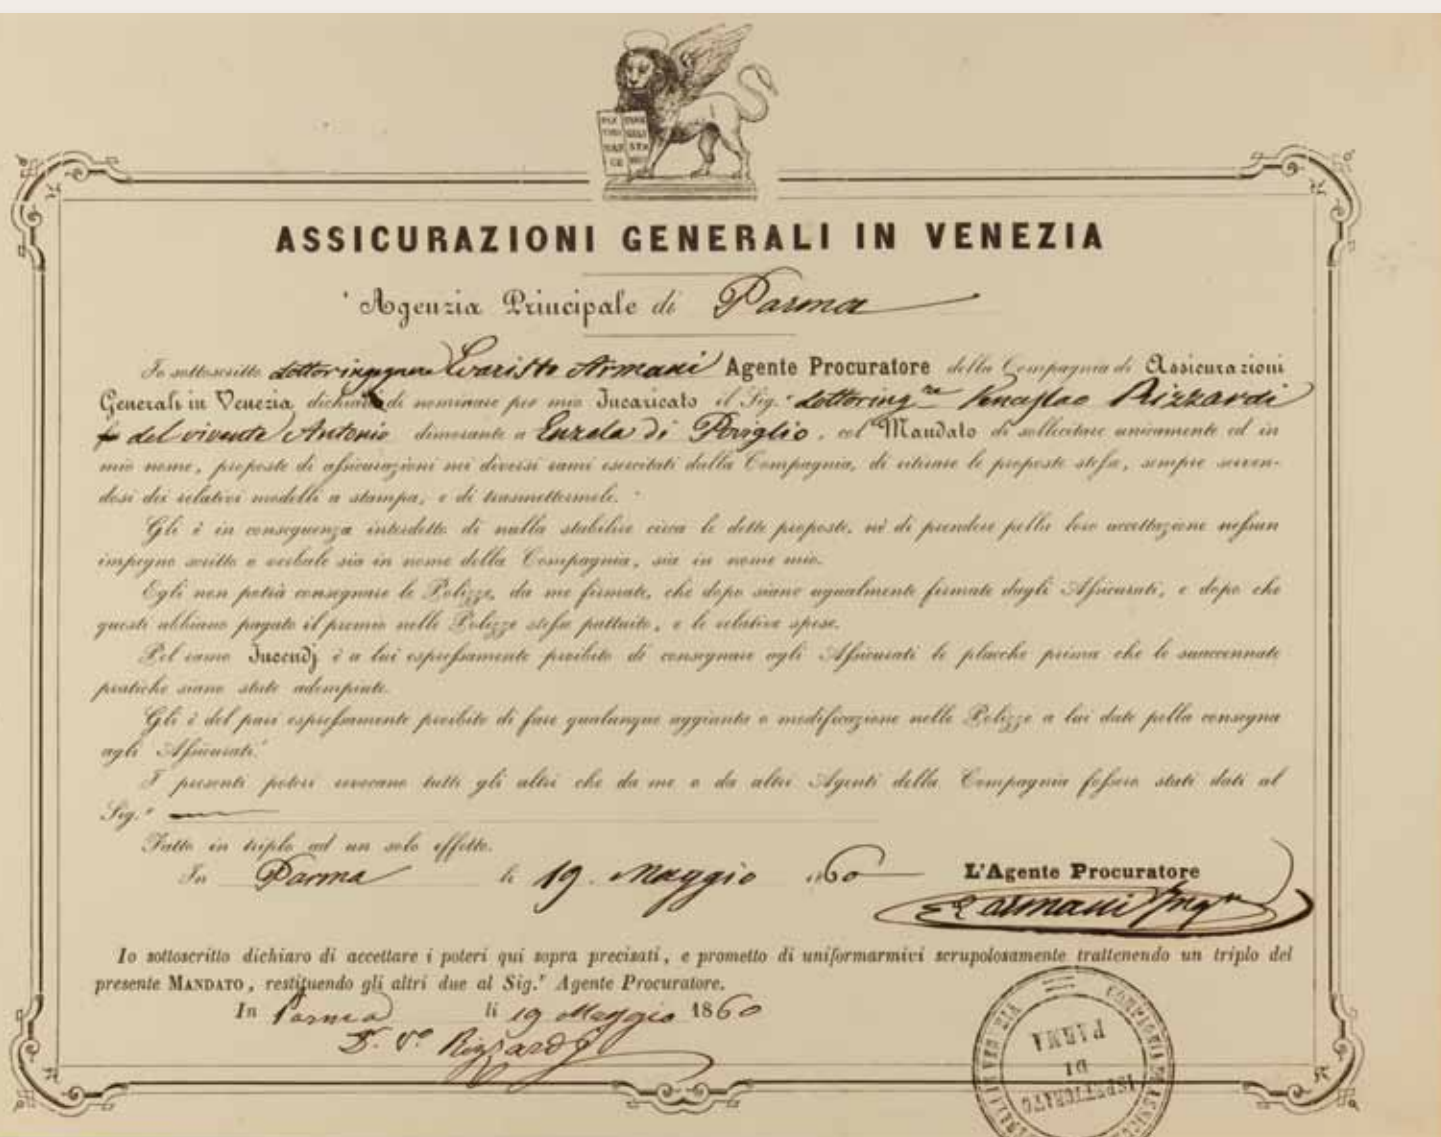 PAX TIBI MARCE EVAN GELI STA MEUS
ASSICURAZIONI GENERALI IN VENEZIA
Agenzia Principale di Parma
Io sottoscritto dottor ingegnere Evaristo Armani Agente Procuratore della Compagnia di Assicurazioni
Generali in Venezia dichiaro di nominare per mio Incaricato il Sig.r dottor ing.re Venceslao Rizzardi
del vivente Antonio dimorante a Enzola di Poviglio, col Mandato di sollicitare unicamente ed in
mio nome, proposte di assicurazioni nei diversi rami esercitati dalla Compagnia, di ritirare le proposte stesse, sempre serven-
dosi dei relativi modelli a stampa, e di trasmettermele.
Gli è in conseguenza interdetto di nulla stabilire circa le dette proposte, nè di prendere pella loro accettazione nessun
impegno scritto o verbale sia in nome della Compagnia, sia in nome mio.
Egli non potrà consegnare le Polizze, da me firmate, che dopo siano egualmente firmate dagli Assicurati, e dopo che
questi abbiano pagato il premio nelle Polizze stesse pattuito, e le relative spese.
Pel ramo Incendj è a lui espressamente proibito di consegnare agli Assicurati le placche prima che le suaccennate
pratiche siano state adempiute.
Gli è del pari espressamente proibito di fare qualunque aggiunta o modificazione nelle Polizze a lui date pella consegna
agli Assicurati.
I presenti poteri revocano tutti gli altri che da me o da altri Agenti della Compagnia fossero stati dati al
Sig.r
Fatto in triplo ad un solo effetto.
In Parma li 19. Maggio 1860
L'Agente Procuratore
E Armani Ing.re
Io sottoscritto dichiaro di accettare i poteri qui sopra precisati, e prometto di uniformarmivi scrupolosamente trattenendo un triplo del
presente MANDATO, restituendo gli altri due al Sig.r Agente Procuratore.
In Parma li 19 Maggio 1860
D.r V.o Rizzardi
COMPAGNIA DI ASSICU GENERALI IN VENEZIA
ISPETTORATO
DI
PARMA